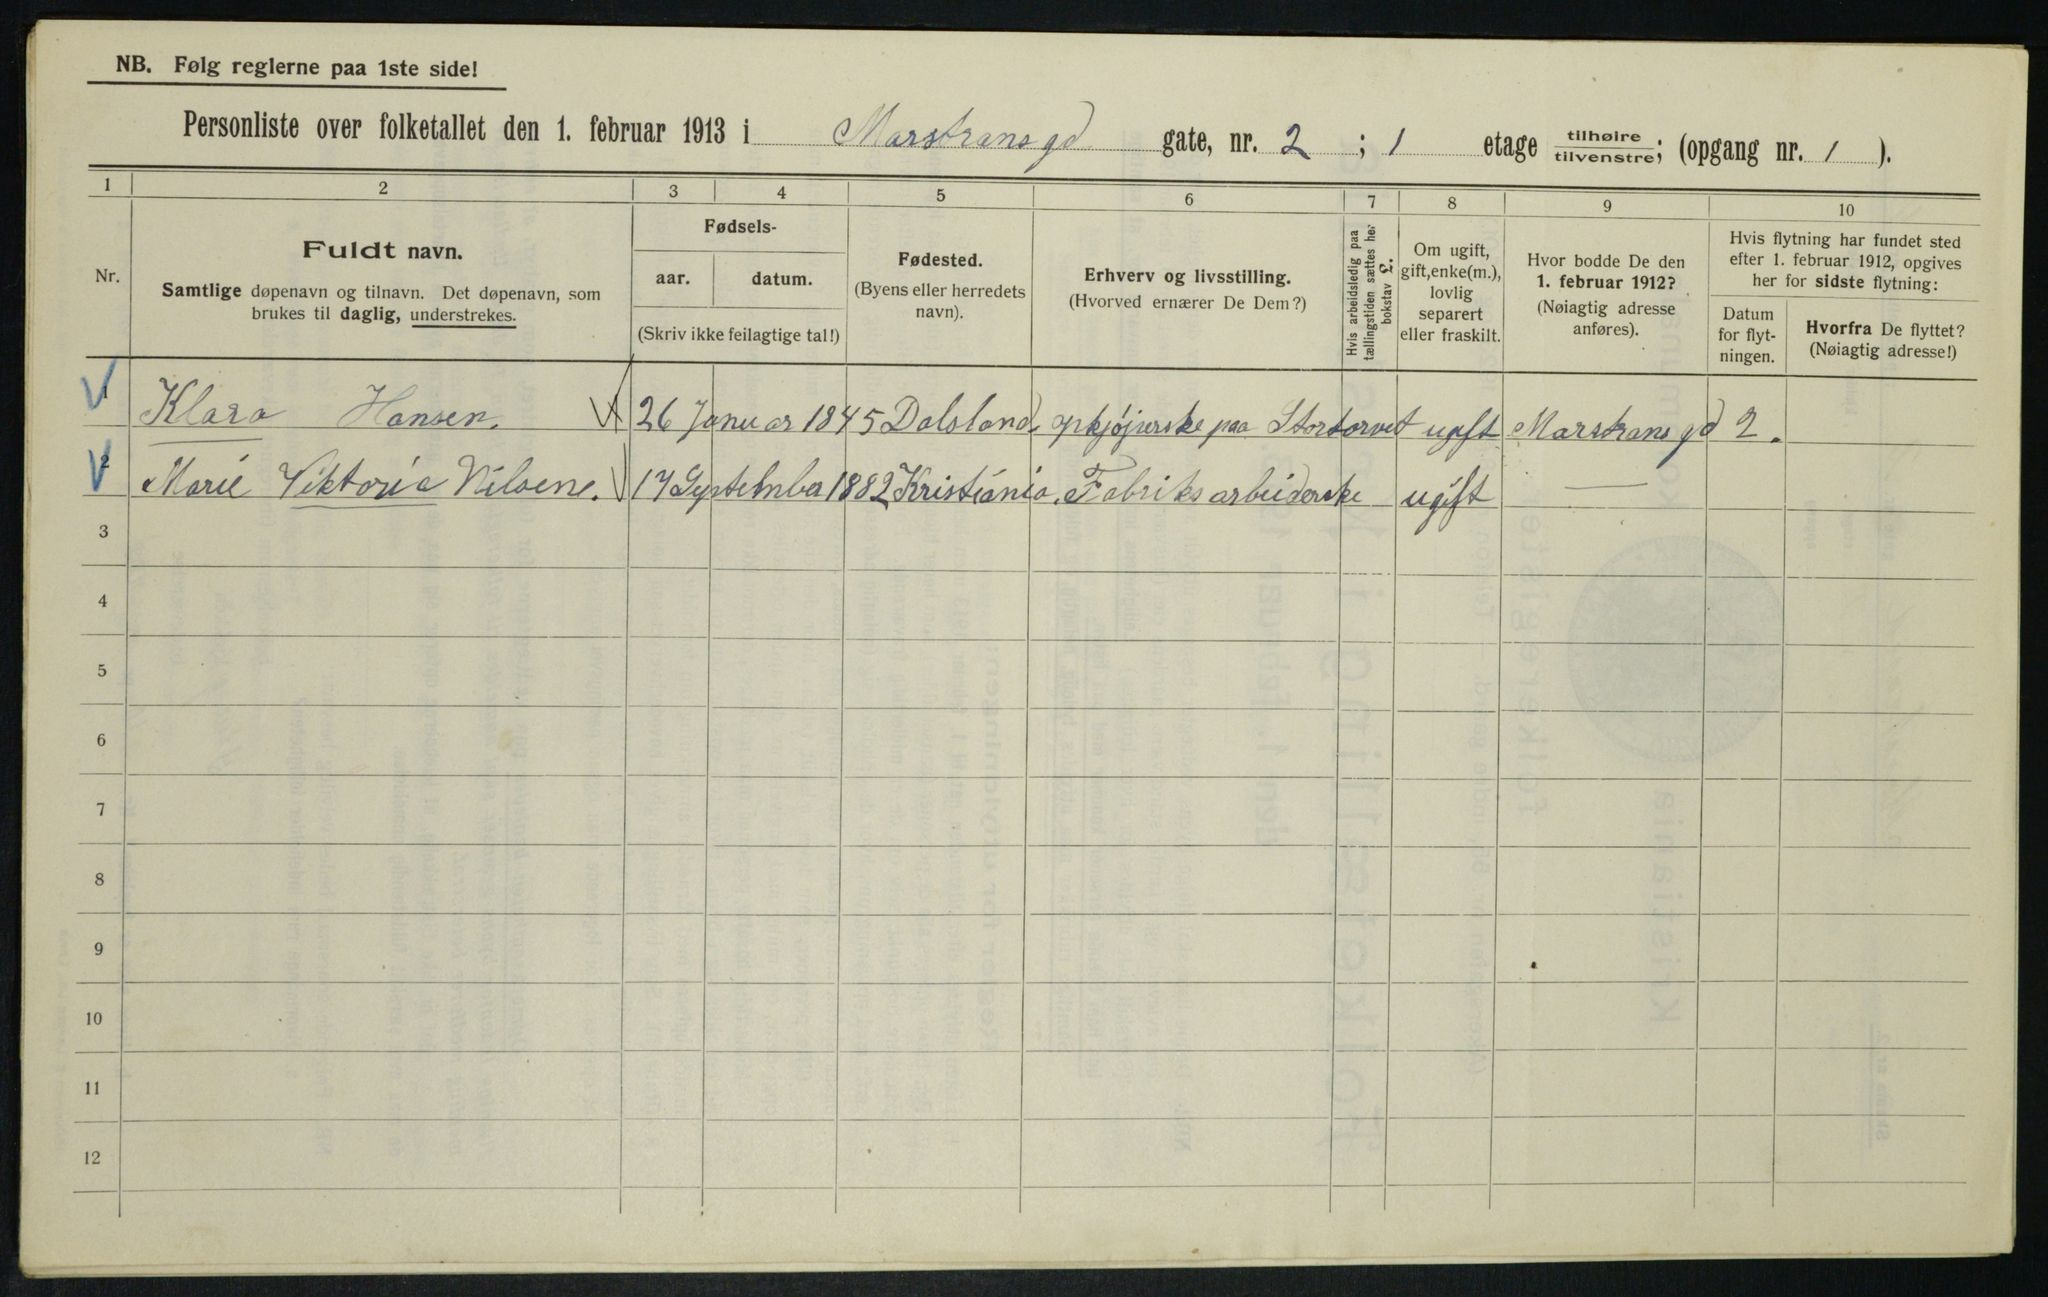 NB. Følg reglerne paa 1ste side!
Personliste over folketallet den 1. februar 1913 i Marstrans gd gate, nr. 2 ; 1 etage tilhøire/tilvenstre; (opgang nr. 1 ).
1 2 3 4 5 6 7 8 9 10
Nr.
Fuldt navn.
Samtlige døpenavn og tilnavn. Det døpenavn, som
brukes til daglig, understrekes.
Fødsels-
aar. datum.
(Skriv ikke feilagtige tal!)
Fødested.
(Byens eller herredets
navn).
Erhverv og livsstilling.
(Hvorved ernærer De Dem?)
Hvis arbeidsledig paa
tællingstiden sættes her
bokstav L.
Om ugift,
gift, enke(m.),
lovlig
separert
eller fraskilt.
Hvor bodde De den
1. februar 1912?
(Nøiagtig adresse
anføres).
Hvis flytning har fundet sted
efter 1. februar 1912, opgives
her for sidste flytning:
Datum
for flyt-
ningen.
Hvorfra De flyttet?
(Nøiagtig adresse!)
1 Klara Hansen. 26 Januar 1845 Dalsland. opkjøjerske paa Stortorvet ugift Marstrans gd 2.
2 Marie Viktoria Nilsene. 17 September 1882 Kristiania. Fabriksarbeiderske ugift —
3
4
5
6
7
8
9
10
11
12